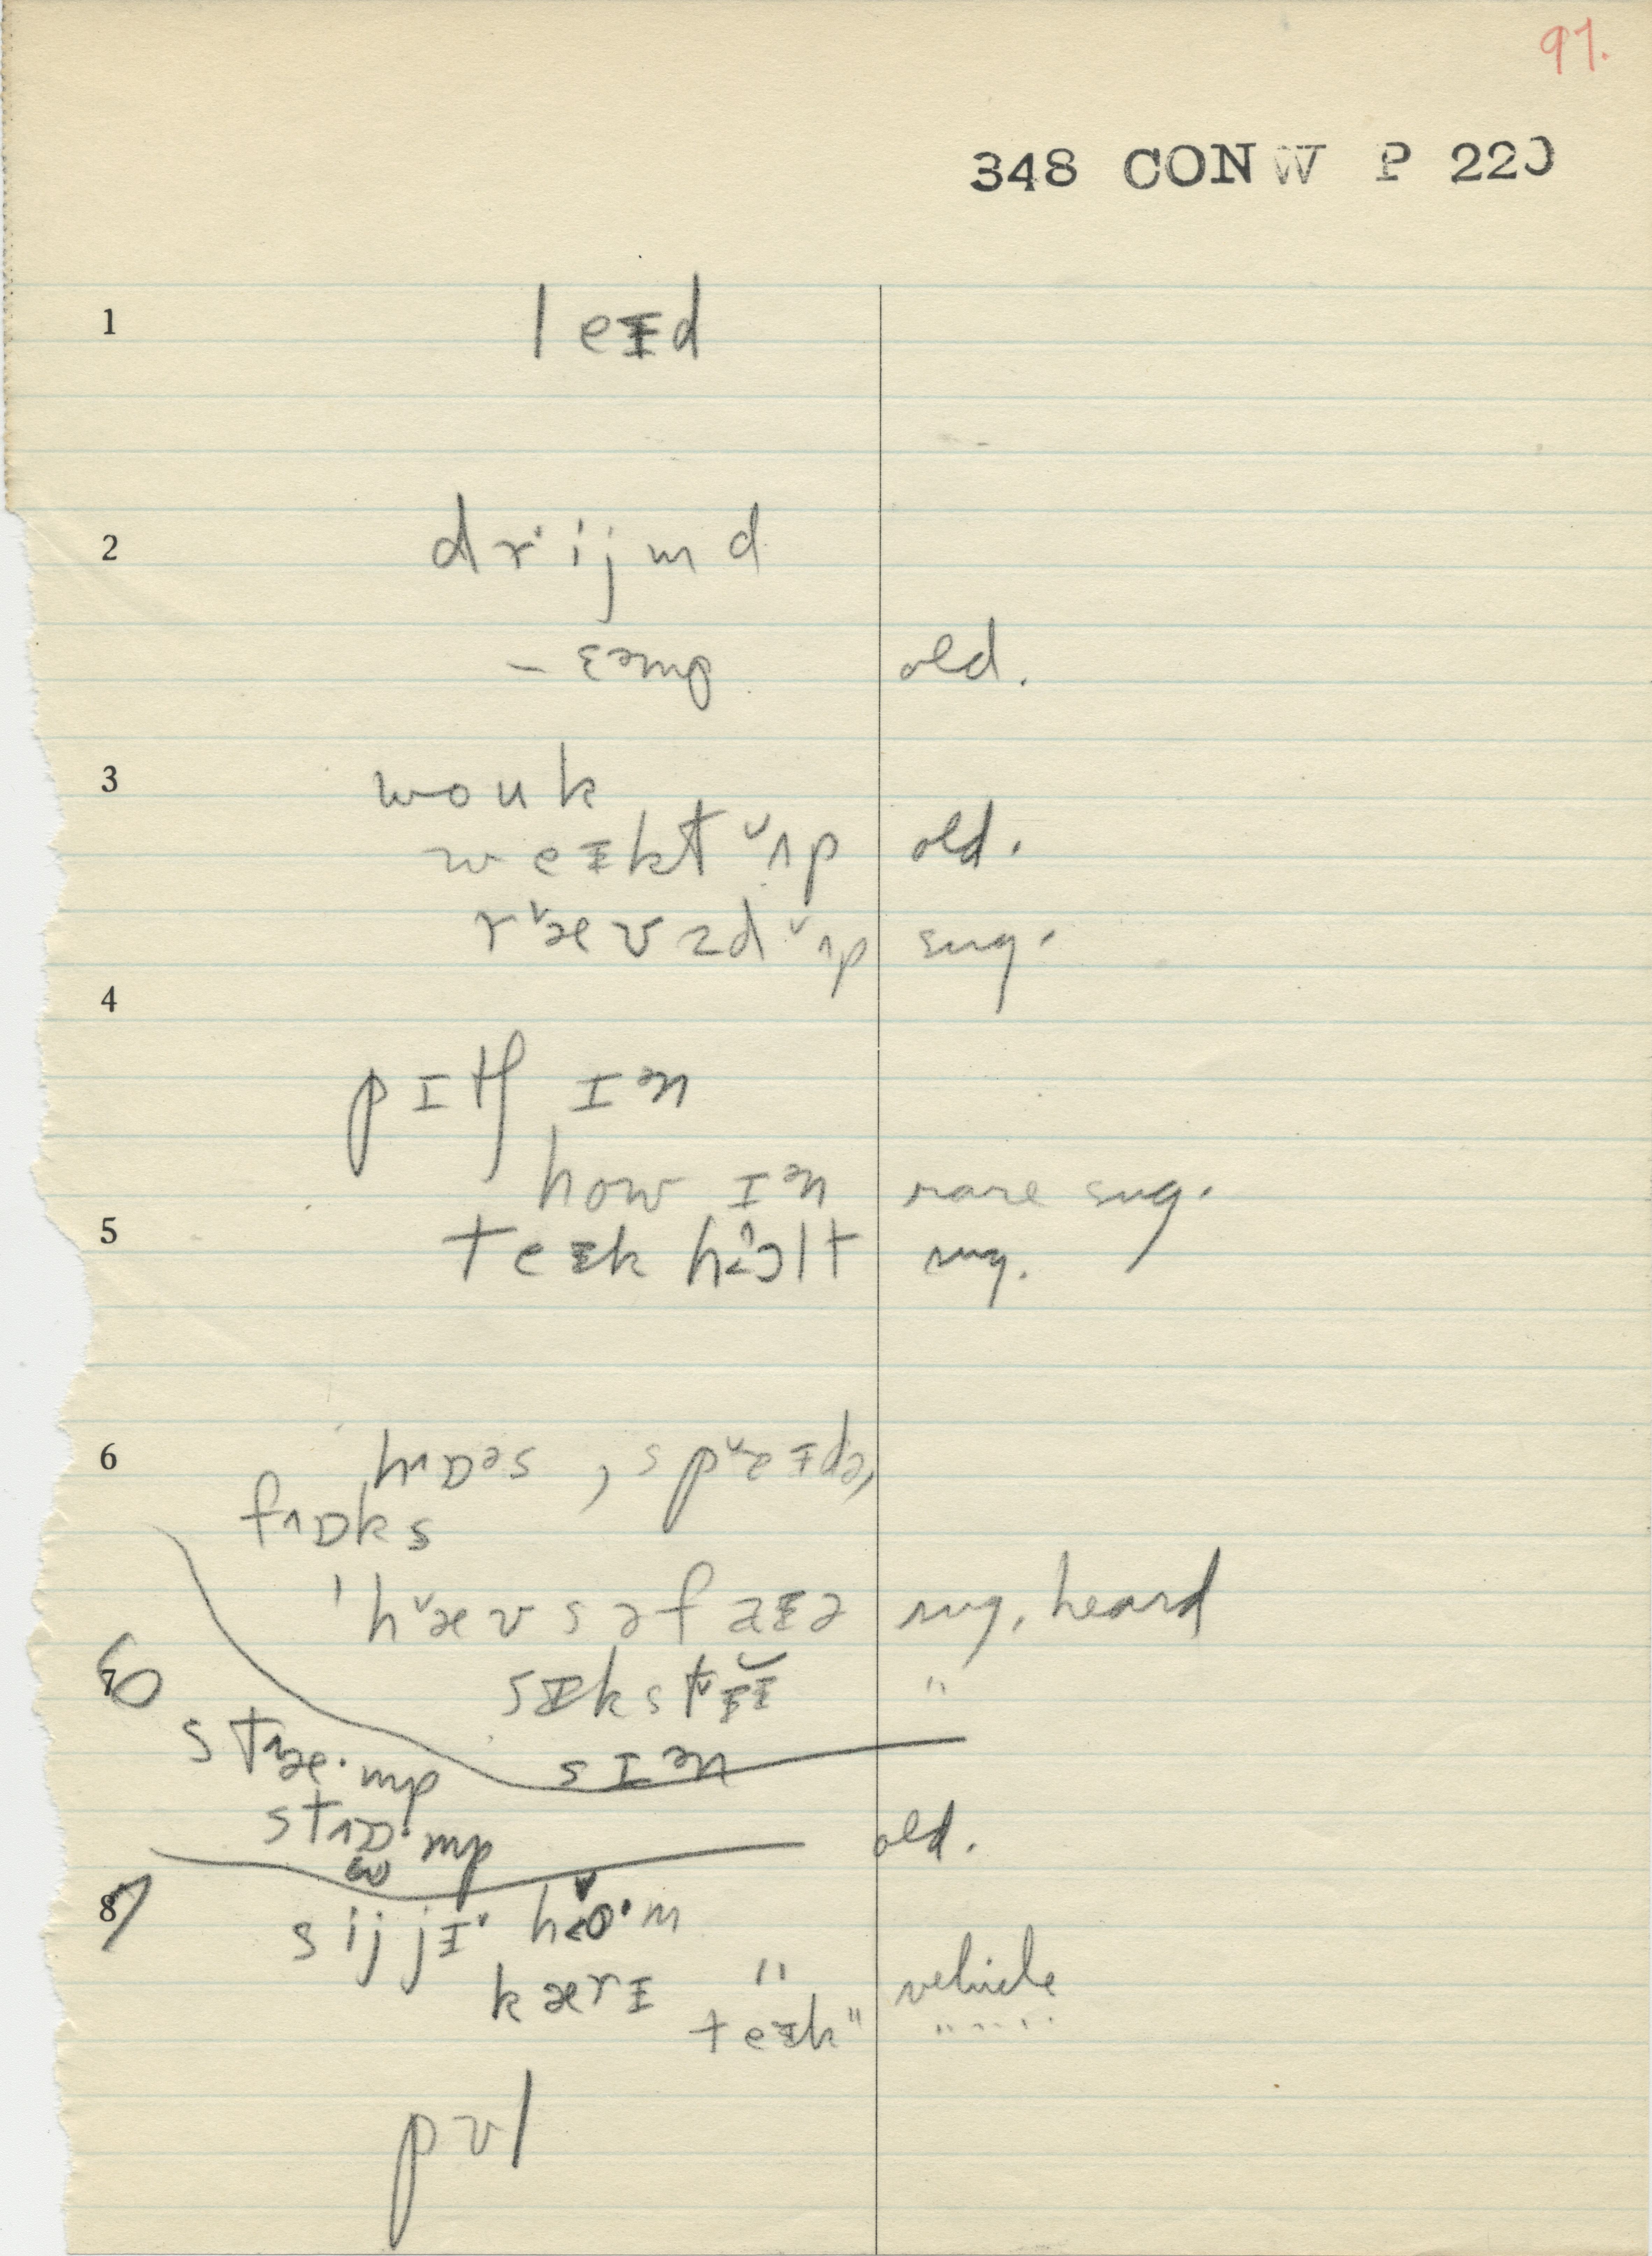 97.
348 CONW P 220
1 leɪd
2 drˈijmd
– ɛəmp old.
3 wouk
weɪkt ˇʌp old.
rˇævzd ˇʌp sug.
4
pɪtʃ ɪən
how ɪən rare sug.
5 teɪk hɔlt sug.
6 hʌɒəs , spˇɛɪdə,
fʌɒks
ˈhˇævsəfaɪə sug. heard
6 7 sɪkstˇɪɪ "
stʌæ·mp sɪən
stʌɒ·mp old.
7 8 sijjɪˇ hˇo·m
kærɪ " vehicle
teɪk " " "
pʊl